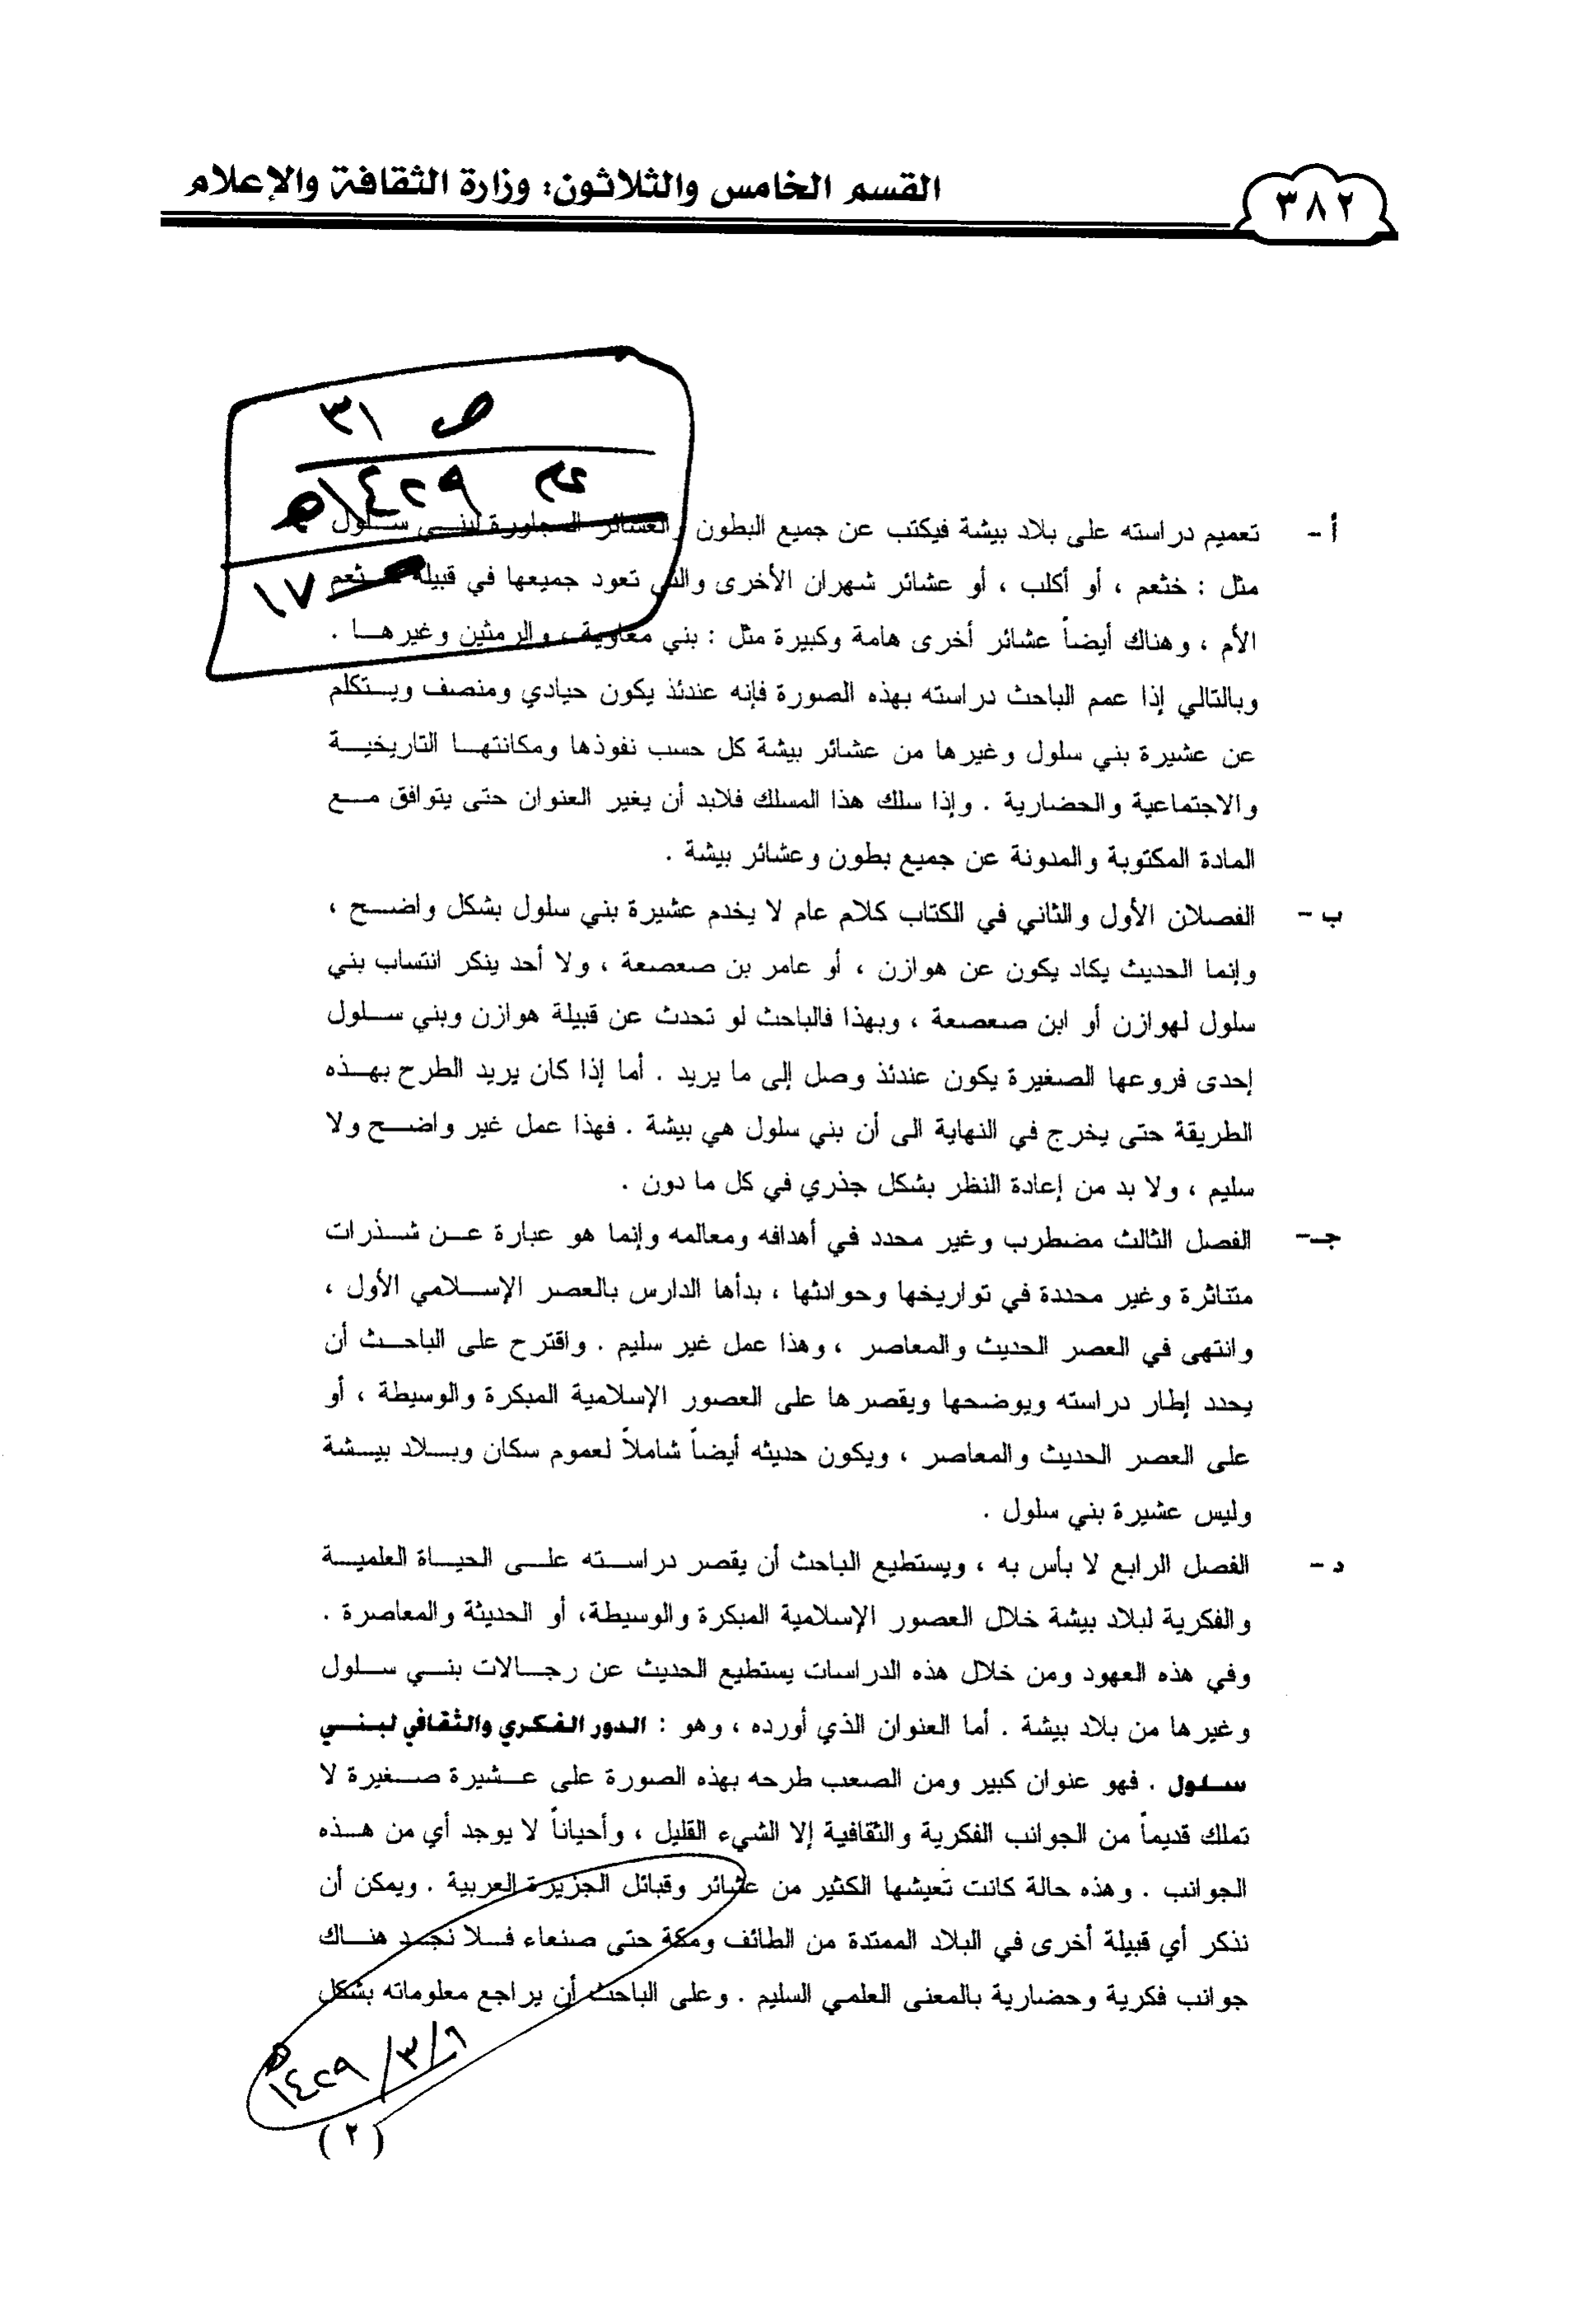 ٣٨٢
القسم الخامس والثلاثون: وزارة الثقافة والإعلام
ص ٣١
عام ١٤٢٩هـ
١٧
أ - تعميم دراسته على بلاد بيشة فيكتب عن جميع البطون والعشائر المجاورة لبني سلول
مثل : خثعم ، أو أكلب ، أو عشائر شهران الأخرى والتي تعود جميعها في قبيلة خثعم
الأم ، وهناك أيضاً عشائر أخرى هامة وكبيرة مثل : بني معاوية ، والرمثين وغيرها .
وبالتالي إذا عمم الباحث دراسته بهذه الصورة فإنه عندئذ يكون حيادي ومنصف ويتكلم
عن عشيرة بني سلول وغيرها من عشائر بيشة كل حسب نفوذها ومكانتها التاريخية
والاجتماعية والحضارية . وإذا سلك هذا المسلك فلابد أن يغير العنوان حتى يتوافق مع
المادة المكتوبة والمدونة عن جميع بطون وعشائر بيشة .
ب - الفصلان الأول والثاني في الكتاب كلام عام لا يخدم عشيرة بني سلول بشكل واضح ،
وإنما الحديث يكاد يكون عن هوازن ، أو عامر بن صعصعة ، ولا أحد ينكر انتساب بني
سلول لهوازن أو ابن صعصعة ، وبهذا فالباحث لو تحدث عن قبيلة هوازن وبني سلول
إحدى فروعها الصغيرة يكون عندئذ وصل إلى ما يريد . أما إذا كان يريد الطرح بهذه
الطريقة حتى يخرج في النهاية الى أن بني سلول هي بيشة . فهذا عمل غير واضح ولا
سليم ، ولا بد من إعادة النظر بشكل جذري في كل ما دون .
جـ- الفصل الثالث مضطرب وغير محدد في أهدافه ومعالمه وإنما هو عبارة عن شذرات
متناثرة وغير محددة في تواريخها وحوادثها ، بدأها الدارس بالعصر الإسلامي الأول ،
وانتهى في العصر الحديث والمعاصر ، وهذا عمل غير سليم . واقترح على الباحث أن
يحدد إطار دراسته ويوضحها ويقصرها على العصور الإسلامية المبكرة والوسيطة ، أو
على العصر الحديث والمعاصر ، ويكون حديثه أيضاً شاملاً لعموم سكان وبلاد بيشة
وليس عشيرة بني سلول .
د - الفصل الرابع لا بأس به ، ويستطيع الباحث أن يقصر دراسته على الحياة العلمية
والفكرية لبلاد بيشة خلال العصور الإسلامية المبكرة والوسيطة، أو الحديثة والمعاصرة .
وفي هذه العهود ومن خلال هذه الدراسات يستطيع الحديث عن رجالات بني سلول
وغيرها من بلاد بيشة . أما العنوان الذي أورده ، وهو : الدور الفكري والثقافي لبني
سلول . فهو عنوان كبير ومن الصعب طرحه بهذه الصورة على عشيرة صغيرة لا
تملك قديماً من الجوانب الفكرية والثقافية إلا الشيء القليل ، وأحياناً لا يوجد أي من هذه
الجوانب . وهذه حالة كانت تعيشها الكثير من عشائر وقبائل الجزيرة العربية . ويمكن أن
نذكر أي قبيلة أخرى في البلاد الممتدة من الطائف ومكة حتى صنعاء فلا نجد هناك
جوانب فكرية وحضارية بالمعنى العلمي السليم . وعلى الباحث أن يراجع معلوماته بشكل
١٤٢٩/٣/٦هـ
( ٢ )